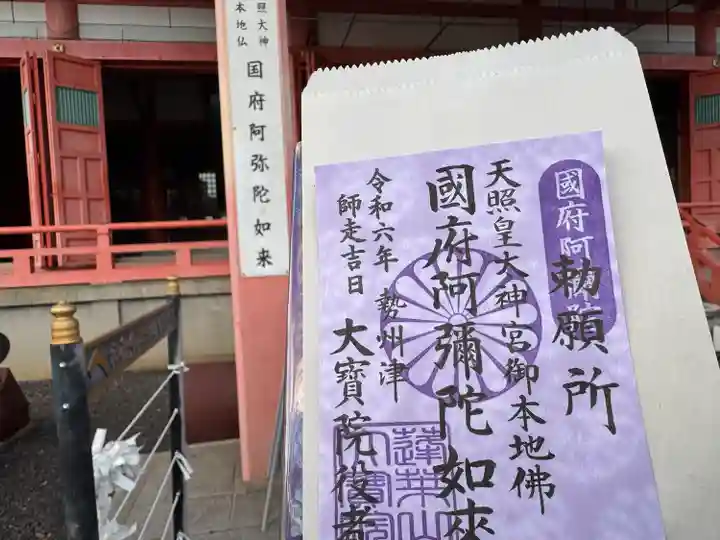 照大神
本地仏
国府阿弥陀如来
國府阿
勅願所
天照皇大神宮御本地佛
國府阿彌陀如來
令和六年 勢州津
師走吉日
大寳院役者
蓬莱山